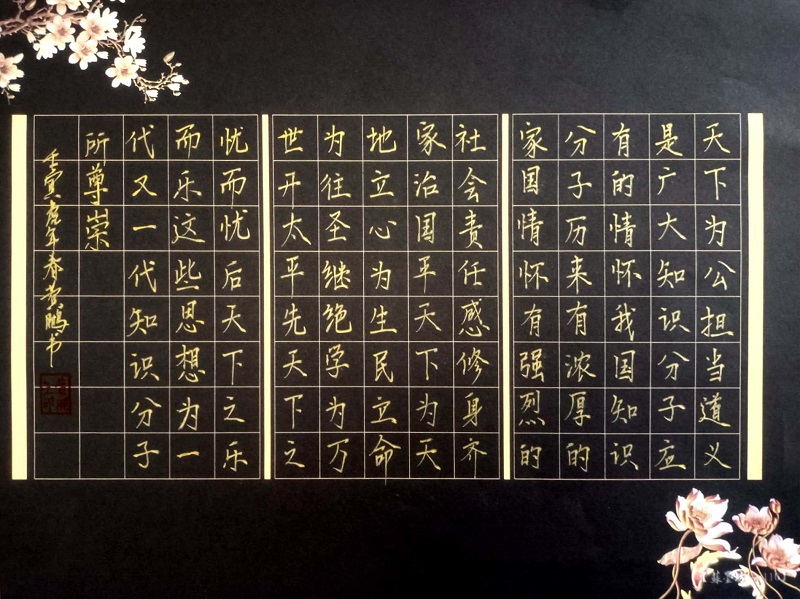 天下为公担当道义
是广大知识分子应
有的情怀我国知识
分子历来有浓厚的
家国情怀有强烈的
社会责任感修身齐
家治国平天下为天
地立心为生民立命
为往圣继绝学为万
世开太平先天下之
忧而忧后天下之乐
而乐这些思想为一
代又一代知识分子
所尊崇
壬寅虎年春黄鹏书